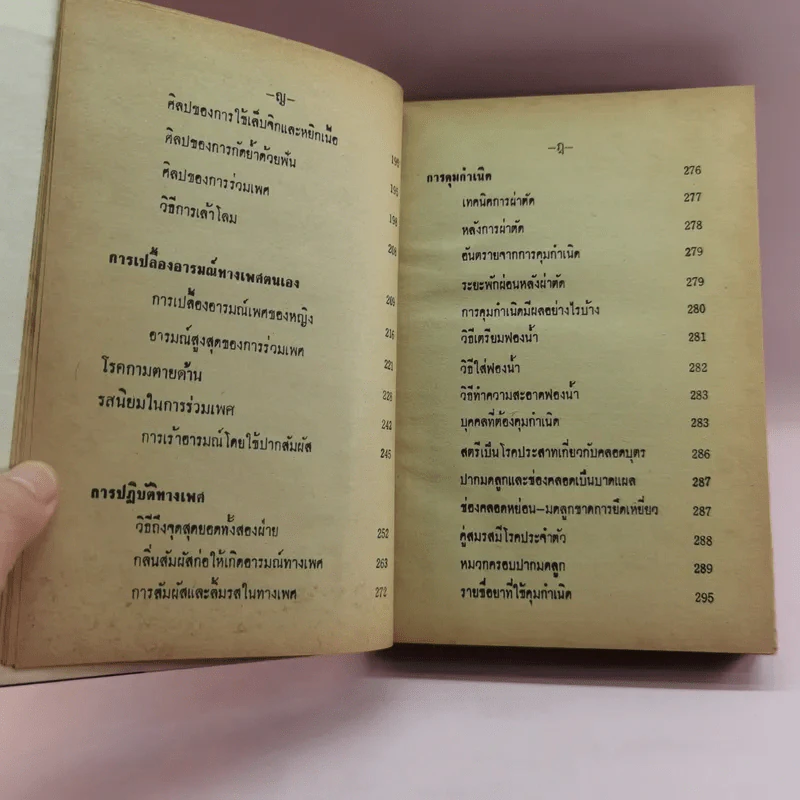 —ญ—
ศิลปของการใช้เล็บจิกและหยิกเนื้อ 190
ศิลปของการกัดย้ำด้วยฟัน 195
ศิลปของการร่วมเพศ 198
วิธีการเล้าโลม 208
การเปลื้องอารมณ์ทางเพศตนเอง
การเปลื้องอารมณ์เพศของหญิง 209
อารมณ์สูงสุดของการร่วมเพศ 216
โรคกามตายด้าน 221
รสนิยมในการร่วมเพศ 228
243
การเร้าอารมณ์โดยใช้ปากสัมผัส 245
การปฏิบัติทางเพศ
วิธีถึงจุดสุดยอดทั้งสองฝ่าย 252
กลิ่นสัมผัสก่อให้เกิดอารมณ์ทางเพศ 263
การสัมผัสและลิ้มรสในทางเพศ 272
—ฎ—
การคุมกำเนิด 276
เทคนิคการผ่าตัด 277
หลังการผ่าตัด 278
อันตรายจากการคุมกำเนิด 279
ระยะพักผ่อนหลังผ่าตัด 279
การคุมกำเนิดมีผลอย่างไรบ้าง 280
วิธีเตรียมฟองน้ำ 281
วิธีใส่ฟองน้ำ 282
วิธีทำความสะอาดฟองน้ำ 283
บุคคลที่ต้องคุมกำเนิด 283
สตรีเป็นโรคประสาทเกี่ยวกับคลอดบุตร 286
ปากมดลูกและช่องคลอดเป็นบาดแผล 287
ช่องคลอดหย่อน—มดลูกขาดการยึดเหยี่ยว 287
คู่สมรสมีโรคประจำตัว 288
หมวกครอบปากมดลูก 289
รายชื่อยาที่ใช้คุมกำเนิด 295